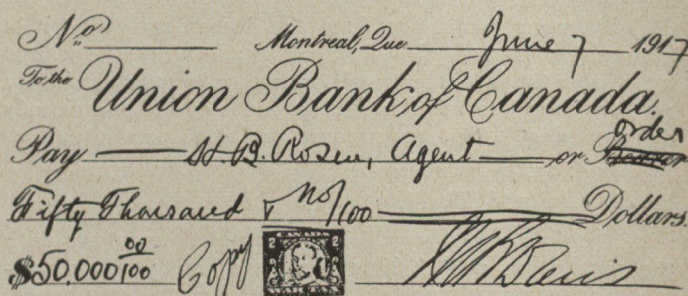 No. Montreal, Que June 7 1917
To the Union Bank of Canada.
order
Pay H. B. Rosen, Agent or Bearer
Fifty Thousand & no/100 Dollars.
$50.000 00/100 Copy 2 2 Davis